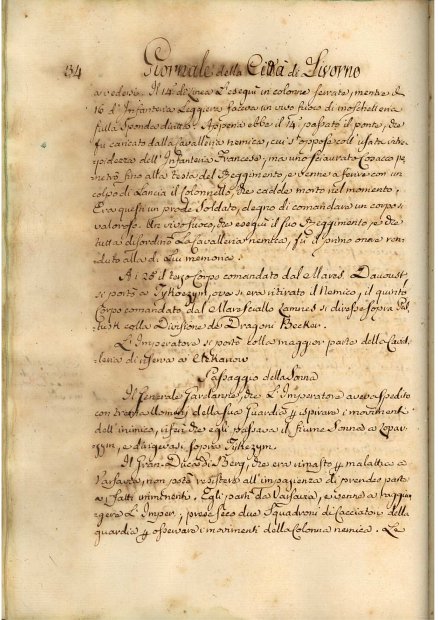 134 Giornale della Città di Livorno
a vedersi. Il 14° di Linea l'eseguì in colonne serrate, mentre il
16 d'Infanteria Leggiera faceva un vivo fuoco di moschetteria
sulla Sponda Appena ebbe il 14° passato il ponte, che
fu caricato dalla Cavalleria nemica, cui s'oppose coll'usata intre-
pidezza dell'Infanteria Francese, ma uno sciaurato Cosacco pe-
netrò fino alla testa del Reggimento, e venne a ferire con un
colpo di Lancia il Colonnello, che cadde morto nel momento.
Era questi un prode Soldato, degno di comandare un corpo sì
valoroso. Un vivo fuoco, che eseguì il suo Reggimento, e che
tutta disordinò La Cavalleria nemica, fu il primo onore ren-
duto alla di Lui memoria.
A i 25 il terzo Corpo comandato dal Mares. Davoust
si portò a Tykoczym, ove si era ritirato il Nemico, il quinto
Corpo comandato dal Maresciallo Lannes si diresse sopra Pul-
tusk colla Divisione de Dragoni Becker.
L'Imperatore si portò colla maggior parte della Caval-
leria di riserva a Ciekanow
Passaggio della Sonna
Il Generale Gardanne, che L'Imperatore aveva spedito
con trenta Uomini della sua Guardia p spirare i movimenti
dell'inimico, riferì che egli passava il fiume Sonna a Lopac-
zym, e dirigevasi sopra Tykezym.
Il Gran-Duca di Berg, che era rimasto p malattia a
Varsavia, non potè resistere all'impazienza di prender parte
a i fatti imminenti. Egli partì da Varsavia, e venne a raggiun-
gere L'Imper; prese seco due Squadroni di Cacciatori della
guardia p osservare i movimenti della Colonna nemica. Le